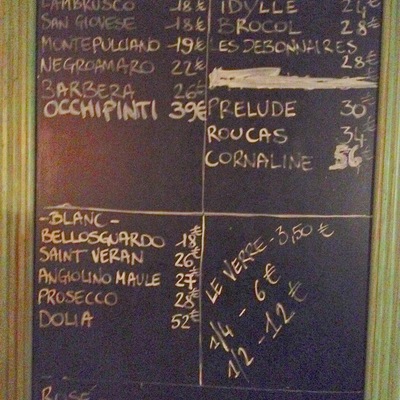 LAMBRUSCO 18€
SAN GIOVESE 18€
MONTEPULCIANO 19€
NEGROAMARO 22€
BARBERA 26€
OCCHIPINTI 39€
IDYLLE 24€
BROCOL 28€
LES DEBONNAIRES
28€
PRELUDE 30€
ROUCAS 34€
CORNALINE 56€
-BLANC-
BELLOSGUARDO 18€
SAINT VERAN 26€
ANGIOLINO MAULE 27€
PROSECCO 28€
DOLIA 52€
LE VERRE - 3,50€
1/4 - 6€
1/2 - 12€
ROSE